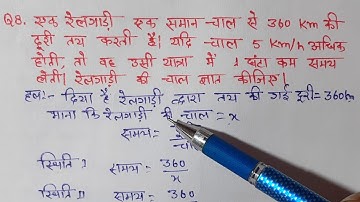 Q8. एक रेलगाड़ी एक समान चाल से 360 km की
दूरी तय करती है। यदि चाल 5 km/h अधिक
होती, तो वह उसी यात्रा में 1 घंटा कम समय
लेती। रेलगाड़ी की चाल ज्ञात कीजिए।
हल:- दिया है रेलगाड़ी द्वारा तय की गई दूरी = 360km
माना कि रेलगाड़ी की चाल = x
समय =
स्थिति I समय = 360/x
स्थिति II समय = 360